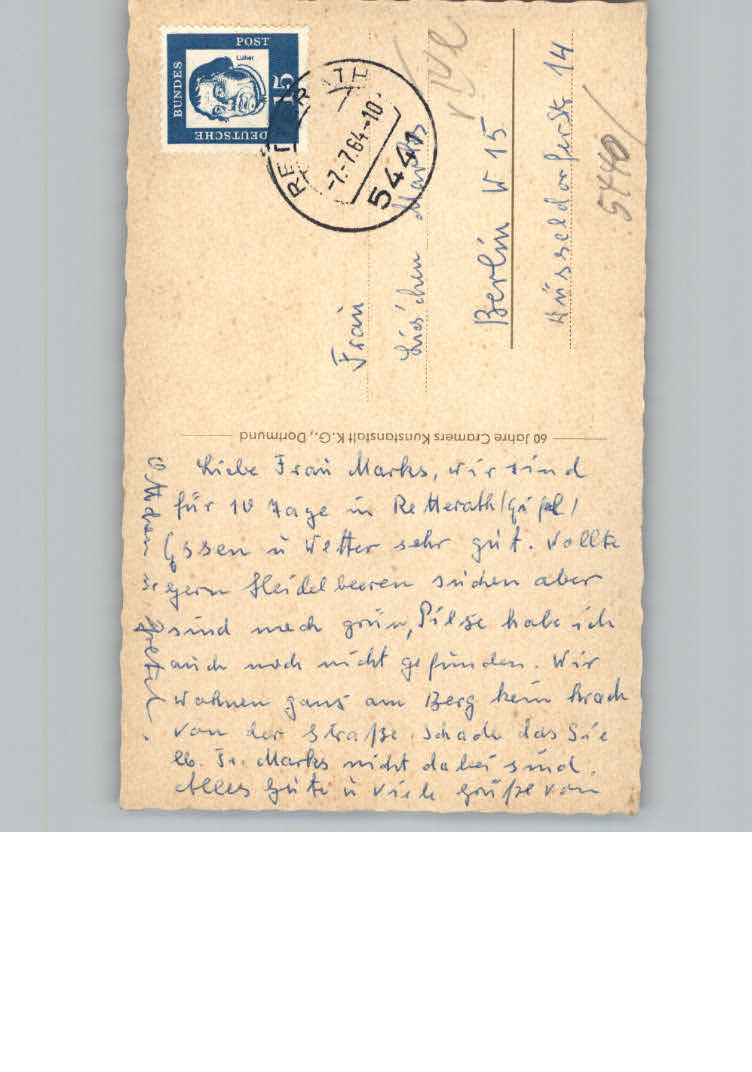 DEUTSCHE BUNDESPOST
Luther
15
RETTERATH
-7.-7.64-10
5441
5440
Frau
Lies'chen Marks
Berlin W 15
Düsseldorferstr 14
60 Jahre Cramers Kunstanstalt K.G., Dortmund
Liebe Frau Marks, wir sind
für 10 Tage in Retterath/Eifel/
Essen u Wetter sehr gut. Wollte
gern Heidelbeeren suchen aber
sind noch grün, Pilze habe ich
auch noch nicht gefunden. Wir
wohnen ganz am Berg kein Krach
von der Straße. Schade das Sie
lb. Fr. Marks nicht dabei sind.
Alles Gute u viele Grüße von
Ottchen u Gretel.